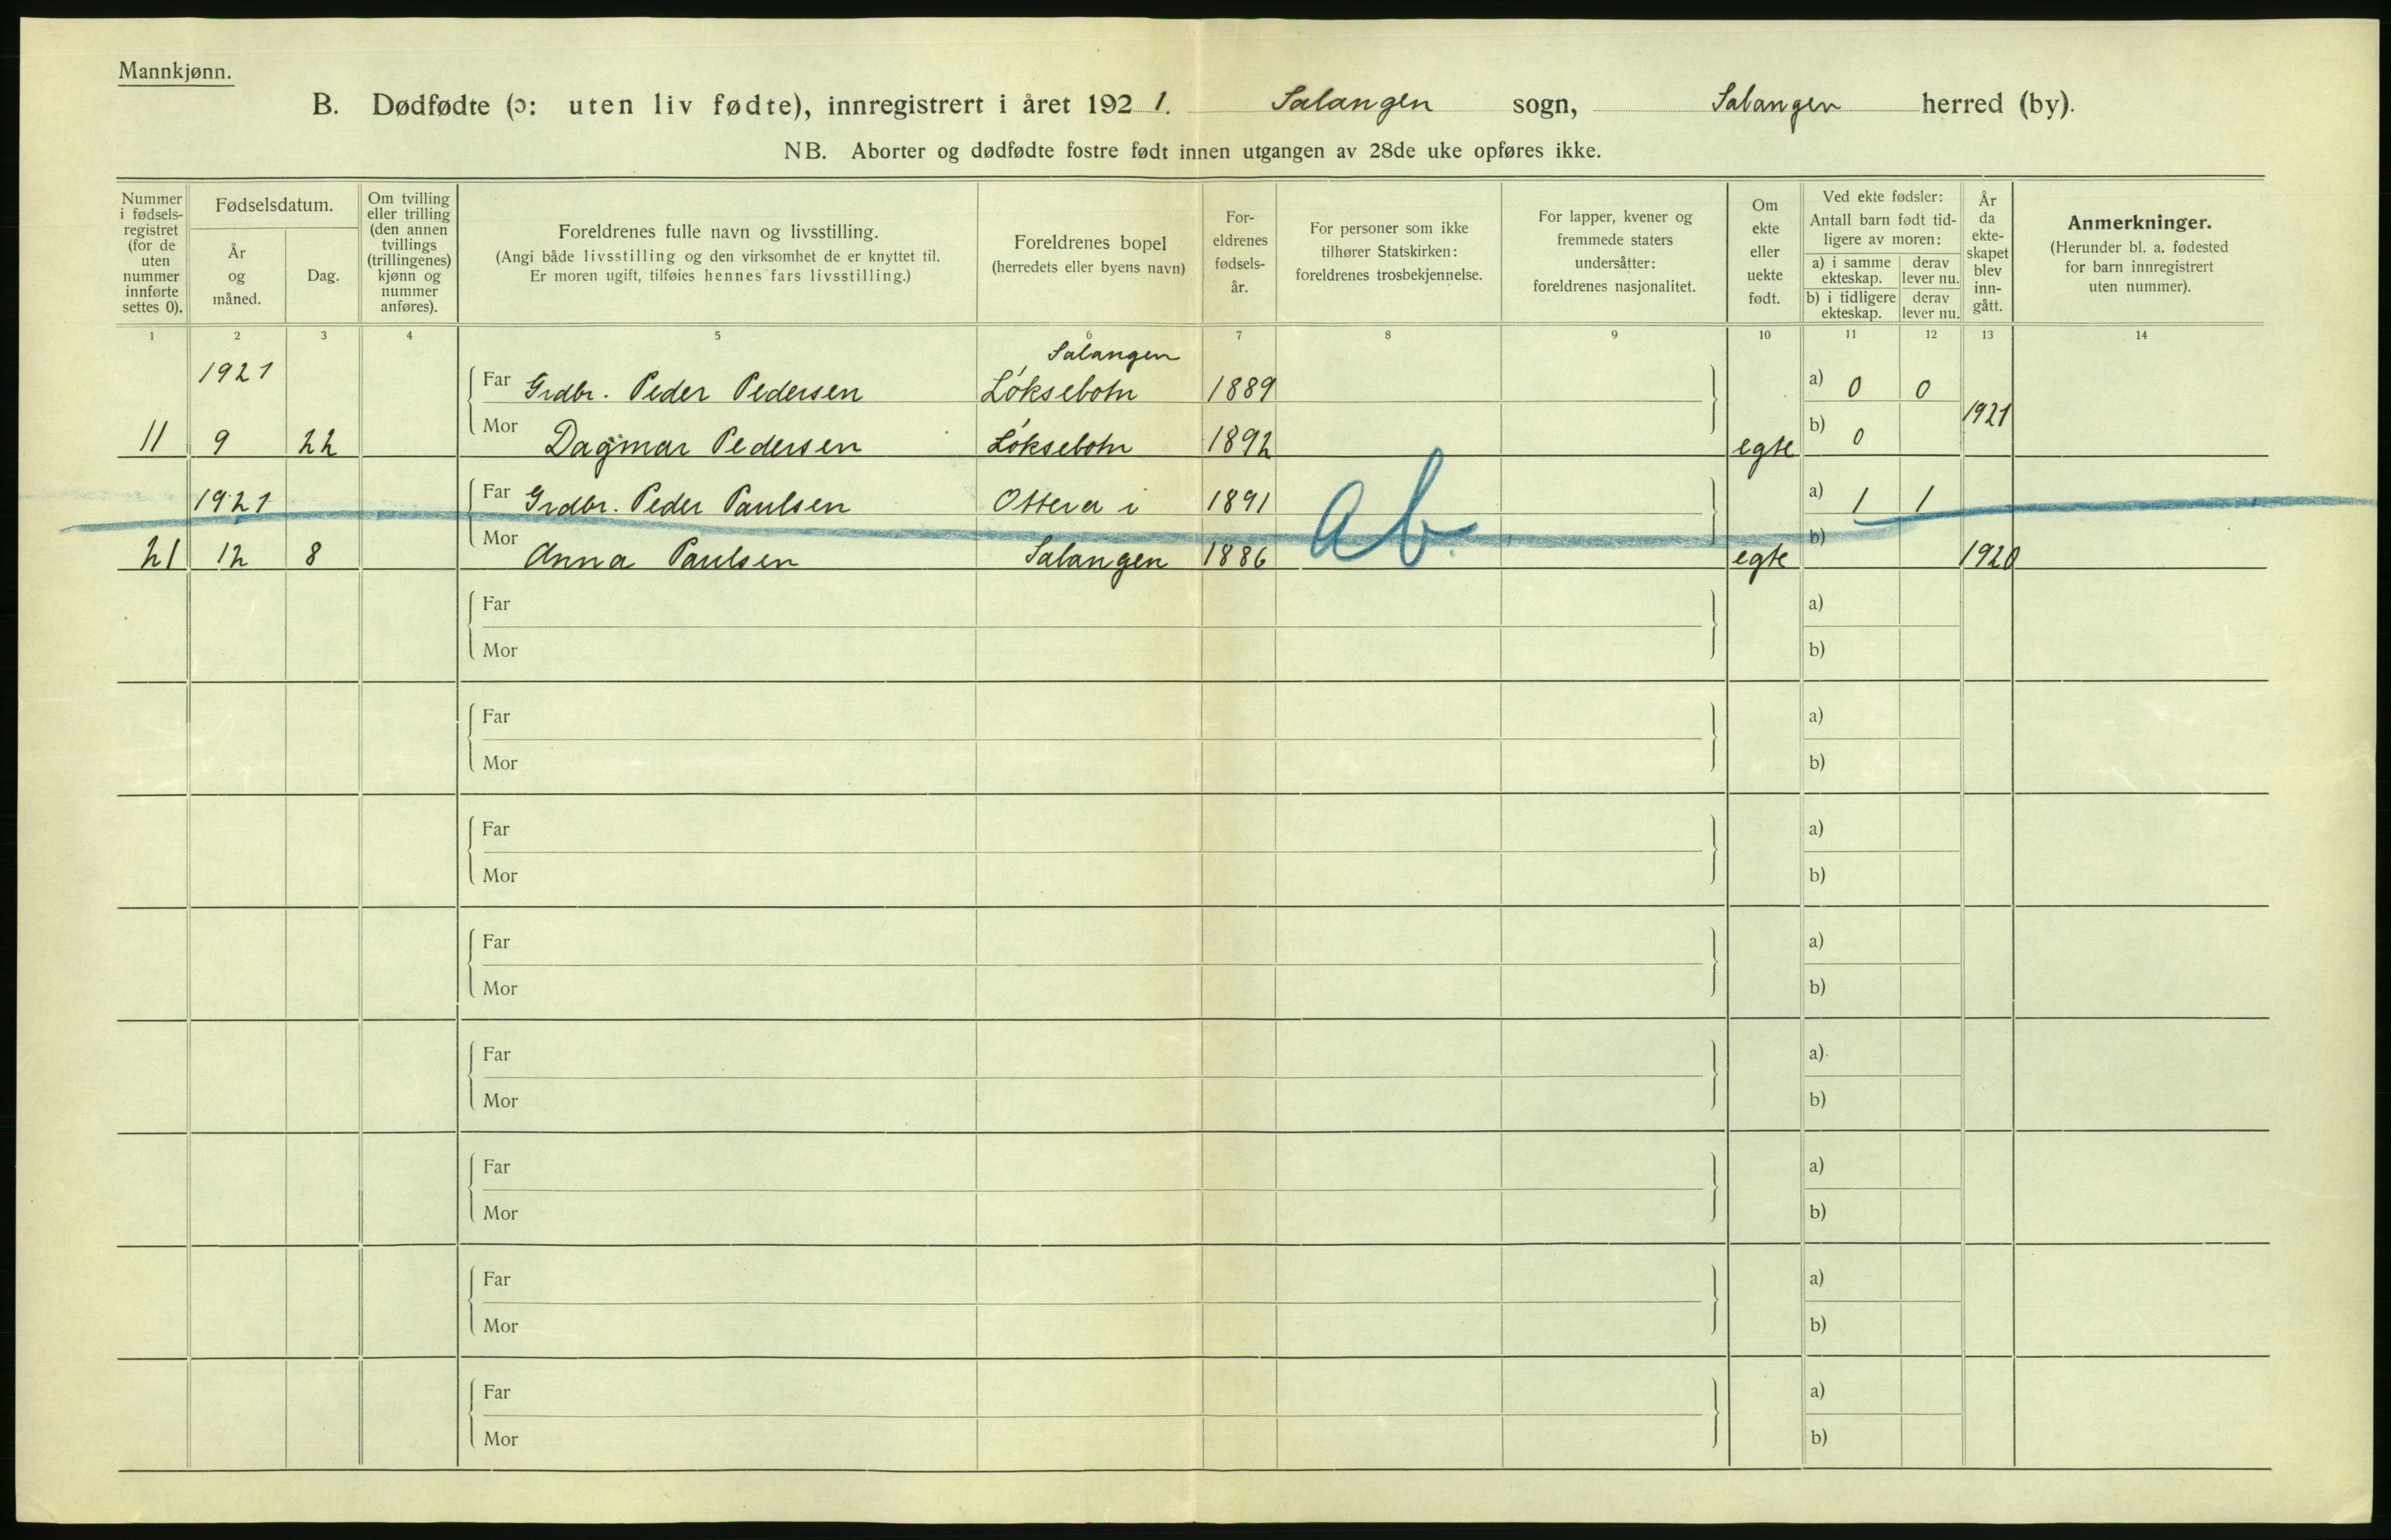 Mannkjønn.
B. Dødfødte (ɔ: uten liv fødte), innregistrert i året 1921. Salangen sogn, Salangen herred (by).
NB. Aborter og dødfødte fostre født innen utgangen av 28de uke opføres ikke.
Nummer i fødsels-registret (for de uten nummer innførte settes 0).
Fødselsdatum.
År og måned.
Dag.
Om tvilling eller trilling (den annen tvillings (trillingenes) kjønn og nummer anføres).
Foreldrenes fulle navn og livsstilling.
(Angi både livsstilling og den virksomhet de er knyttet til.
Er moren ugift, tilføies hennes fars livsstilling.)
Foreldrenes bopel
(herredets eller byens navn)
For-eldrenes fødsels-år.
For personer som ikke tilhører Statskirken: foreldrenes trosbekjennelse.
For lapper, kvener og fremmede staters undersåtter: foreldrenes nasjonalitet.
Om ekte eller uekte født.
Ved ekte fødsler:
Antall barn født tid-ligere av moren:
a) i samme ekteskap.
derav lever nu.
b) i tidligere ekteskap.
derav lever nu.
År da ekte-skapet blev inn-gått.
Anmerkninger.
(Herunder bl. a. fødested for barn innregistrert uten nummer).
1 2 3 4 5 6 7 8 9 10 11 12 13 14
Salangen
1921 Far Grdbr. Peder Pedersen Løksebotn 1889 a) 0 0
1921
11 9 22 Mor Dagmar Pedersen Løksebotn 1892 egte b) 0
1921 Far Grdbr. Peder Paulsen Otterå i 1891 a) 1 1
Ab.
21 12 8 Mor Anna Paulsen Salangen 1886 egte b) 1920
Far a)
Mor b)
Far a)
Mor b)
Far a)
Mor b)
Far a)
Mor b)
Far a)
Mor b)
Far a)
Mor b)
Far a)
Mor b)
Far a)
Mor b)